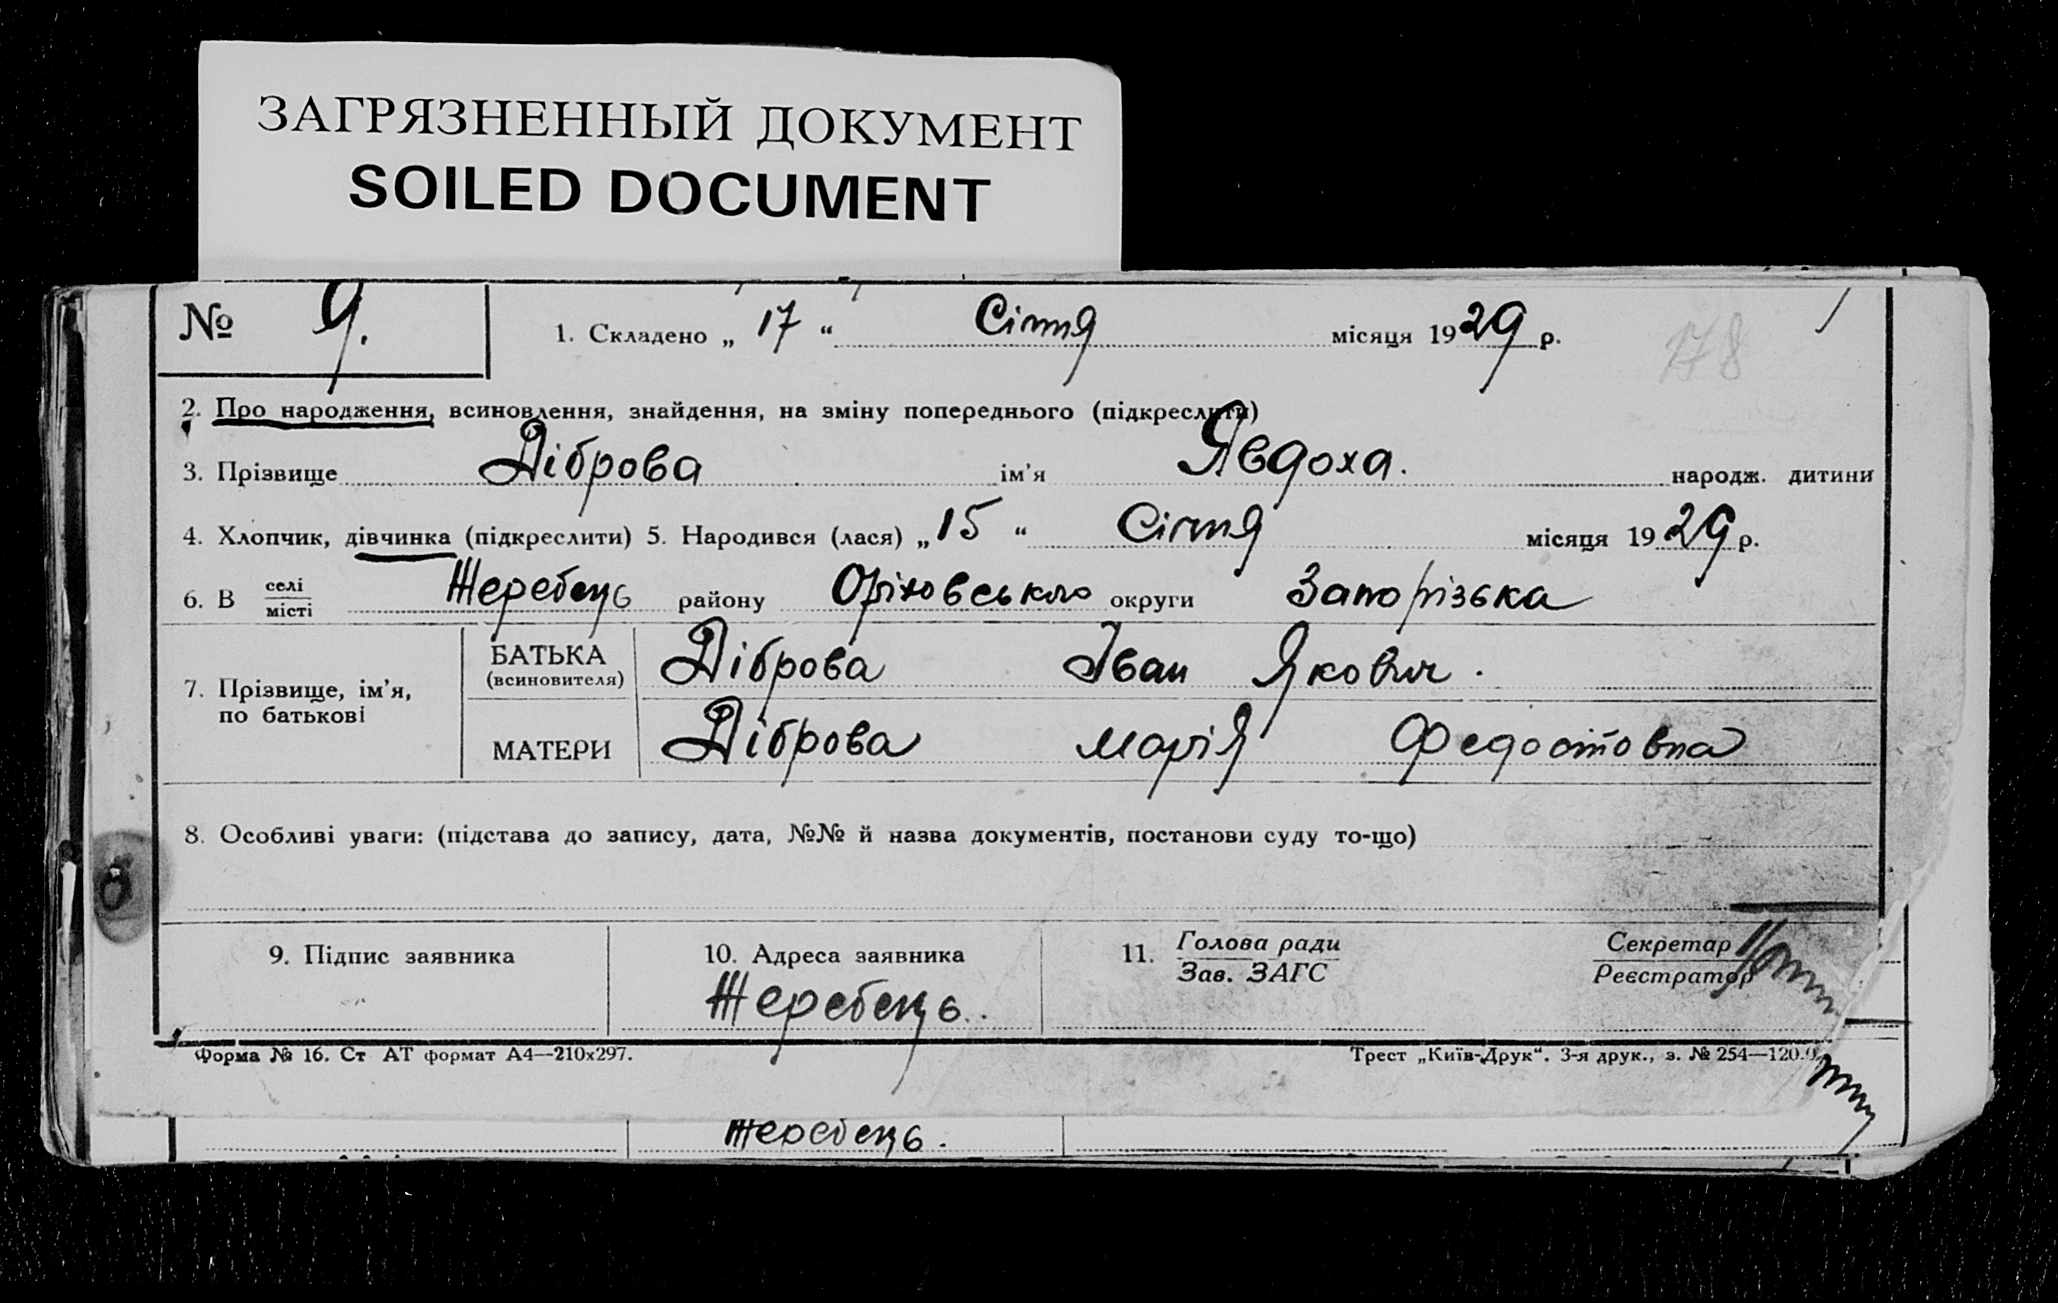 ЗАГРЯЗНЕННЫЙ ДОКУМЕНТ
SOILED DOCUMENT
№ 9. 1. Складено „ 17 “ Січня місяця 1929 р. 178
2. Про народження, всиновлення, знайдення, на зміну попереднього (підкреслити)
3. Прізвище Діброва ім'я Явдоха. народж. дитини
4. Хлопчик, дівчинка (підкреслити) 5. Народився (лася) „ 15 “ Січня місяця 1929 р.
6. В селі Жеребець району Оріховського округи Запорізька
місті
7. Прізвище, ім'я, по батькові
БАТЬКА (всиновителя) Діброва Іван Якович.
МАТЕРИ Діброва Марія Федостовна
8. Особливі уваги: (підстава до запису, дата, №№ й назва документів, постанови суду то-що)
9. Підпис заявника 10. Адреса заявника 11. Голова ради Секретар
Зав. ЗАГС Реєстратор
Жеребець.
Форма № 16. Ст АТ формат А4—210х297. Трест „Київ-Друк“. 3-я друк., з. № 254—120.0
Жеребець.